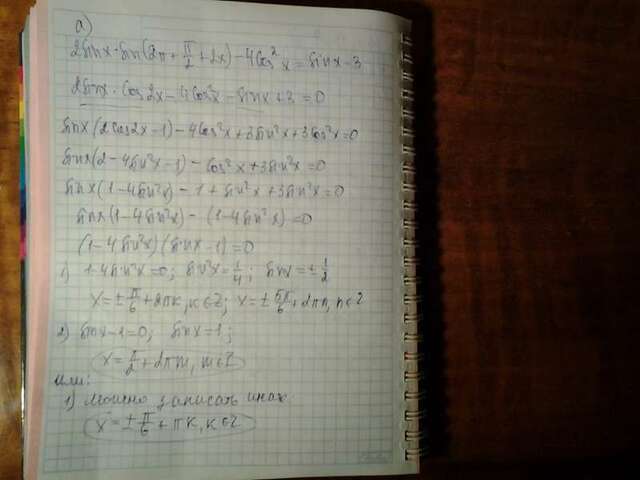 а)
2sinx·sin(2π+π/2+2x)-4cos²x=sinx-3
2sinx·cos2x-4cos²x-sinx+3=0
sinx(2cos2x-1)-4cos²x+3sin²x+3cos²x=0
sinx(2-4sin²x-1)-cos²x+3sin²x=0
sinx(1-4sin²x)-1+sin²x+3sin²x=0
sinx(1-4sin²x)-(1-4sin²x)=0
(1-4sin²x)(sinx-1)=0
1) 1-4sin²x=0; sin²x=1/4; sinx=±1/2
x=±π/6+2πk, k∈Z; x=±5π/6+2πn, n∈Z
2) sinx-1=0; sinx=1;
x=π/2+2πm, m∈Z
или:
1) можно записать инак
x=±π/6+πk, k∈Z